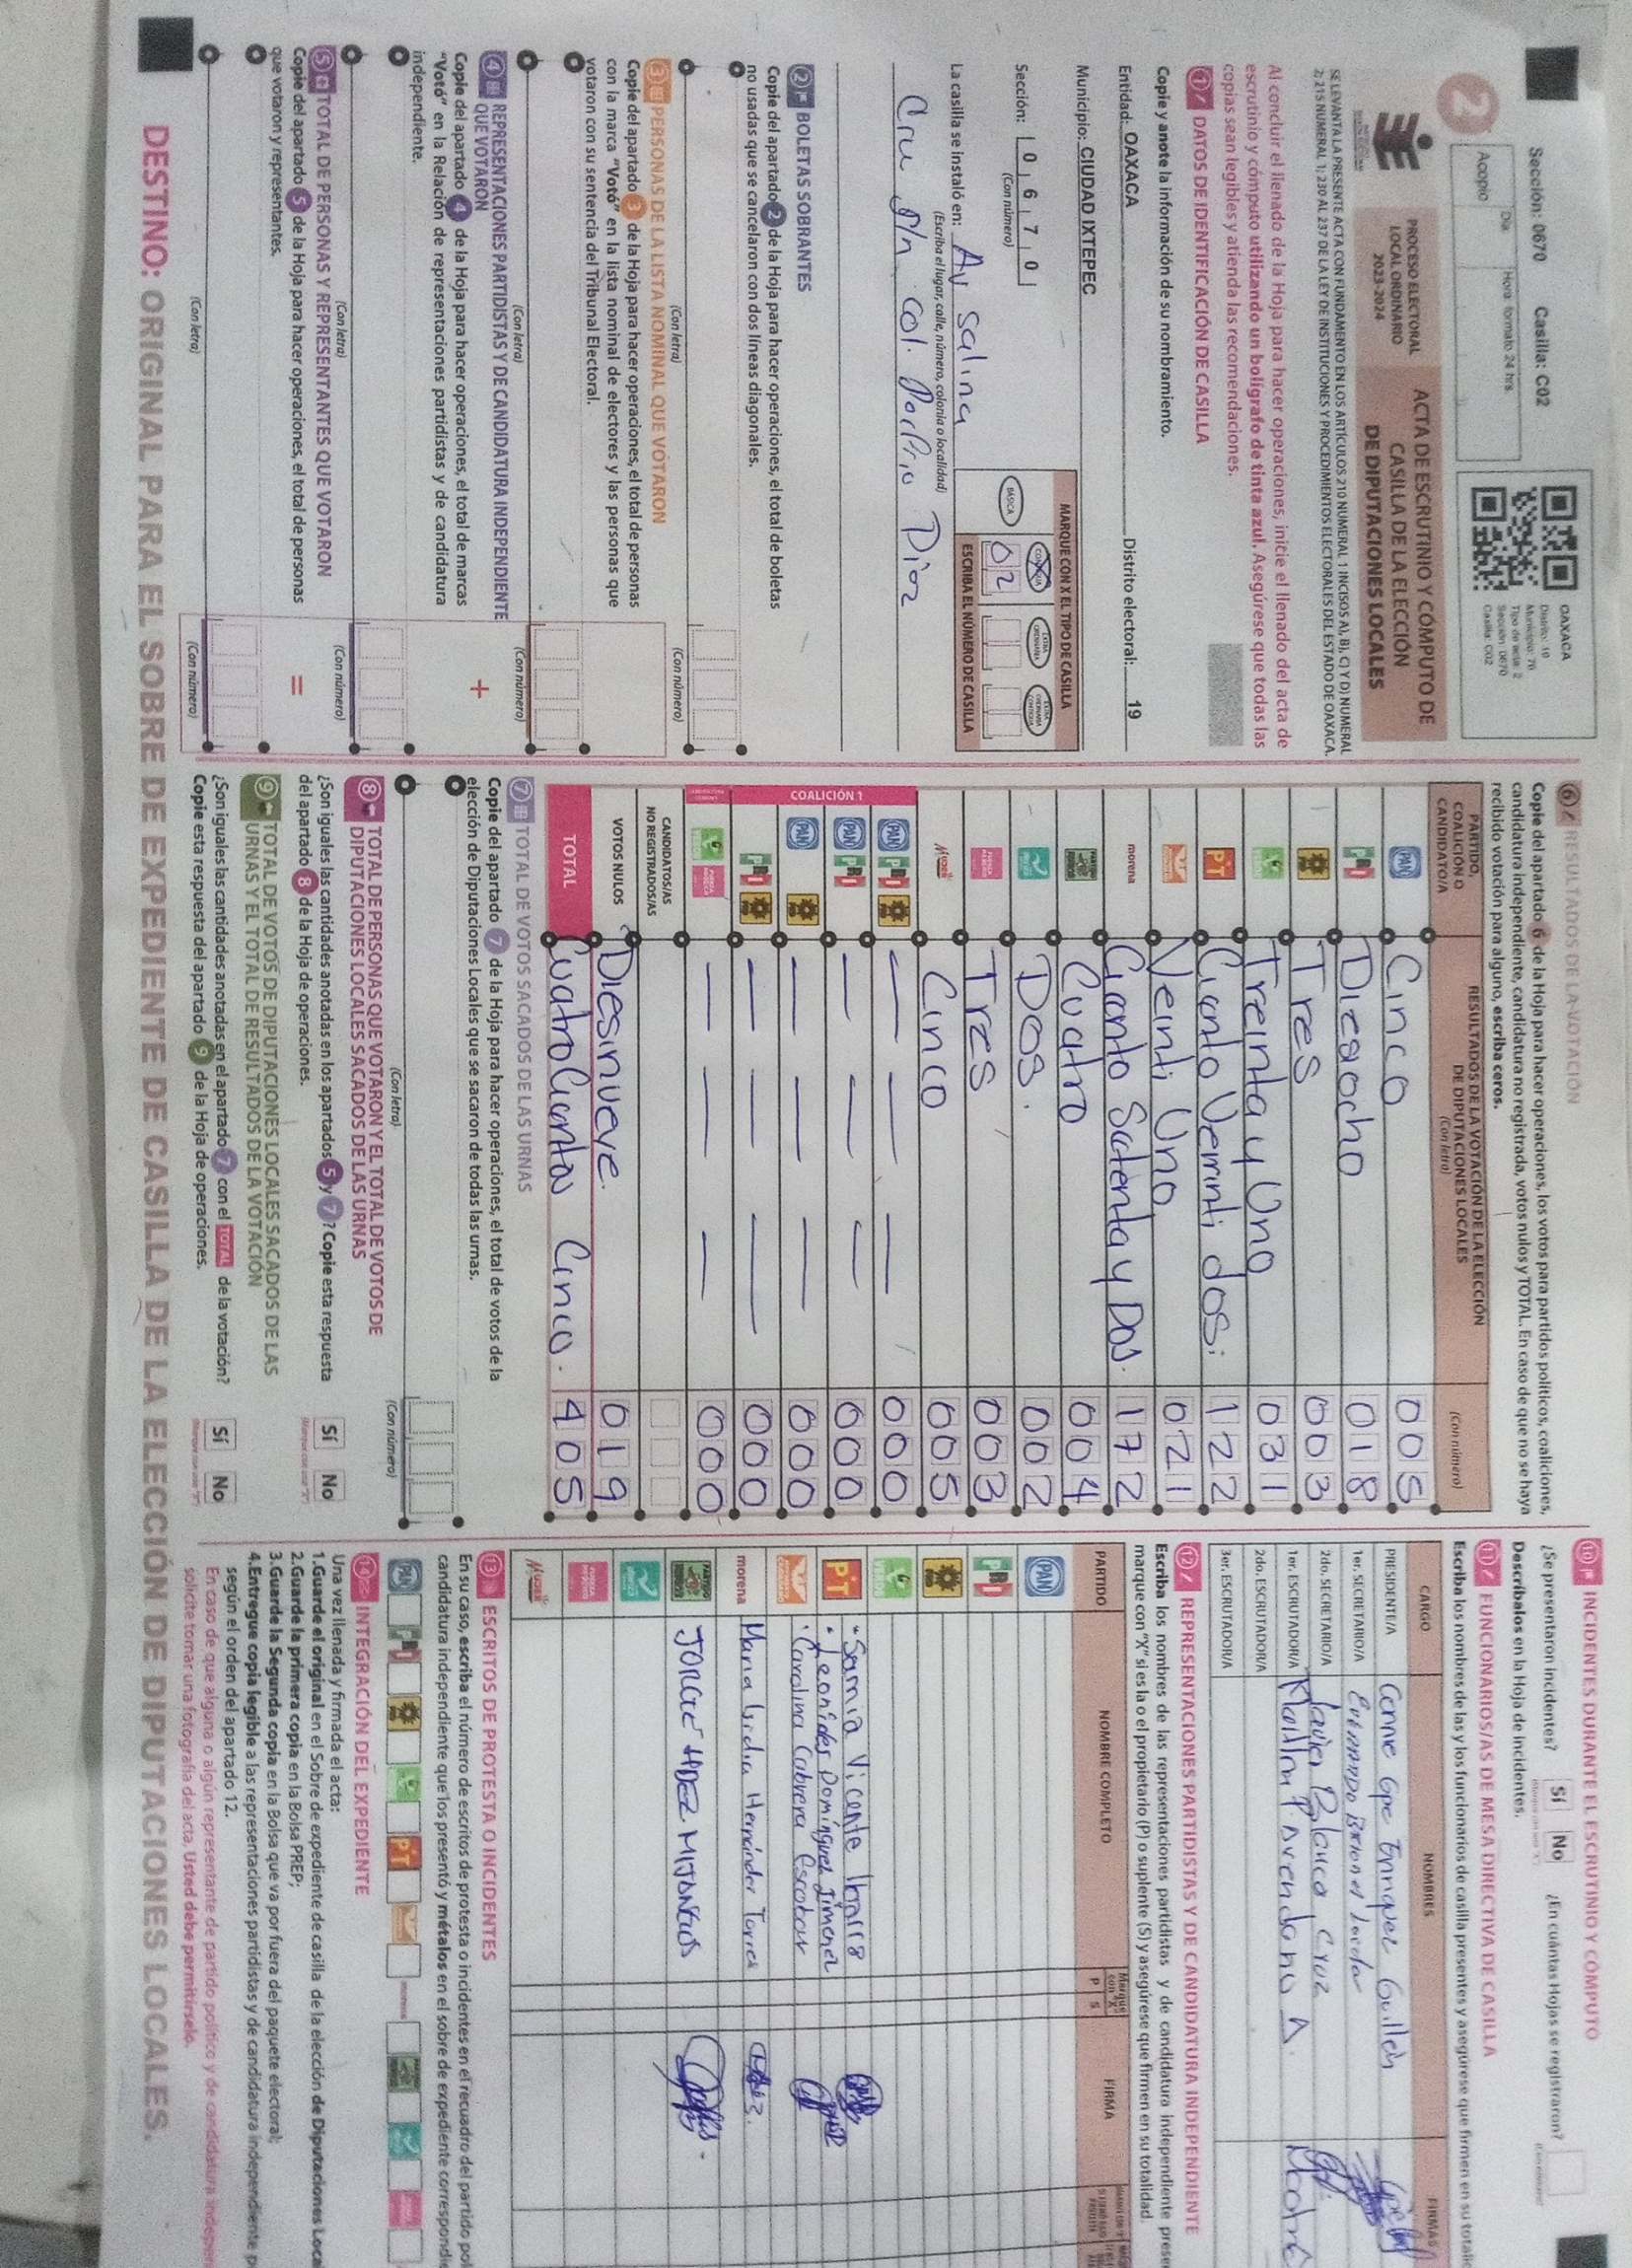 Sección: 0670 Casilla: C02
2
Acopio
Día
Hora formato 24 hrs
OAXACA
Distrito: 19
Municipio: 70
Tipo de acta: 2
Sección: 0670
Casilla: C02
PROCESO ELECTORAL
LOCAL ORDINARIO
2023-2024
ACTA DE ESCRUTINIO Y CÓMPUTO DE
CASILLA DE LA ELECCIÓN
DE DIPUTACIONES LOCALES
SE LEVANTA LA PRESENTE ACTA CON FUNDAMENTO EN LOS ARTÍCULOS 210 NUMERAL 1 INCISOS A), B), C) Y D) NUMERAL
2; 215 NUMERAL 1); 230 AL 237 DE LA LEY DE INSTITUCIONES Y PROCEDIMIENTOS ELECTORALES DEL ESTADO DE OAXACA.
Al concluir el llenado de la Hoja para hacer operaciones, inicie el llenado del acta de
escrutinio y cómputo utilizando un bolígrafo de tinta azul. Asegúrese que todas las
copias sean legibles y atienda las recomendaciones.
1 DATOS DE IDENTIFICACIÓN DE CASILLA
Copie y anote la información de su nombramiento.
Entidad: OAXACA Distrito electoral: 19
Municipio: CIUDAD IXTEPEC
Sección: 0 6 7 0
(Con número)
MARQUE CON X EL TIPO DE CASILLA
BÁSICA CONTIGUA EXTRAORDINARIA EXTRAORDINARIA CONTIGUA
0 2
ESCRIBA EL NÚMERO DE CASILLA
La casilla se instaló en: Av Salina
(Escriba el lugar, calle, número, colonia o localidad)
Cru s/n col. Porfirio Díaz
2 BOLETAS SOBRANTES
Copie del apartado 2 de la Hoja para hacer operaciones, el total de boletas
no usadas que se cancelaron con dos líneas diagonales.
(Con letra) (Con número)
3 PERSONAS DE LA LISTA NOMINAL QUE VOTARON
Copie del apartado 3 de la Hoja para hacer operaciones, el total de personas
con la marca "Votó" en la lista nominal de electores y las personas que
votaron con su sentencia del Tribunal Electoral.
(Con letra) (Con número)
4 REPRESENTACIONES PARTIDISTAS Y DE CANDIDATURA INDEPENDIENTE
QUE VOTARON
+
Copie del apartado 4 de la Hoja para hacer operaciones, el total de marcas
"Votó" en la Relación de representaciones partidistas y de candidatura
independiente.
(Con letra) (Con número)
5 TOTAL DE PERSONAS Y REPRESENTANTES QUE VOTARON
=
Copie del apartado 5 de la Hoja para hacer operaciones, el total de personas
que votaron y representantes.
(Con letra) (Con número)
6 RESULTADOS DE LA VOTACIÓN
Copie del apartado 6 de la Hoja para hacer operaciones, los votos para partidos políticos, coaliciones,
candidatura independiente, candidatura no registrada, votos nulos y TOTAL. En caso de que no se haya
recibido votación para alguno, escriba ceros.
PARTIDO,
COALICIÓN O
CANDIDATO/A
RESULTADOS DE LA VOTACIÓN DE LA ELECCIÓN
DE DIPUTACIONES LOCALES
(Con letra)
(Con número)
PAN Cinco 005
PRI Diesocho 018
PRD Tres 003
VERDE Treinta y Uno 031
PT Ciento Veinti dos. 122
Veinti Uno 021
morena Ciento Setenta y Dos. 172
Cuatro 004
Dos. 002
Tres 003
Mujer Cinco 005
COALICIÓN 1
PAN PRI PRD — — — 000
PAN PRI — — — 000
PAN PRD — — — 000
PRI PRD — — — 000
VERDE — — — 000
CANDIDATOS/AS
NO REGISTRADOS/AS
VOTOS NULOS Diesinueve. 019
TOTAL Cuatro Cientos Cinco. 405
7 TOTAL DE VOTOS SACADOS DE LAS URNAS
Copie del apartado 7 de la Hoja para hacer operaciones, el total de votos de la
elección de Diputaciones Locales que se sacaron de todas las urnas.
(Con letra) (Con número)
8 TOTAL DE PERSONAS QUE VOTARON Y EL TOTAL DE VOTOS DE
DIPUTACIONES LOCALES SACADOS DE LAS URNAS
¿Son iguales las cantidades anotadas en los apartados 5 y 7? Copie esta respuesta
del apartado 8 de la Hoja de operaciones.
Sí No
9 TOTAL DE VOTOS DE DIPUTACIONES LOCALES SACADOS DE LAS
URNAS Y EL TOTAL DE RESULTADOS DE LA VOTACIÓN
¿Son iguales las cantidades anotadas en el apartado 7 con el TOTAL de la votación?
Copie esta respuesta del apartado 9 de la Hoja de operaciones.
Sí No
10 INCIDENTES DURANTE EL ESCRUTINIO Y CÓMPUTO
¿Se presentaron incidentes? Sí No ¿En cuántas Hojas se registraron?
Descríbalos en la Hoja de incidentes.
11 FUNCIONARIOS/AS DE MESA DIRECTIVA DE CASILLA
Escriba los nombres de las y los funcionarios de casilla presentes y asegúrese que firmen en su total
CARGO NOMBRES FIRMAS
PRESIDENTE/A Gpe Enriquez Guillén
1er. SECRETARIO/A
2do. SECRETARIO/A Javier Blanco Cruz
1er. ESCRUTADOR/A
2do. ESCRUTADOR/A
3er. ESCRUTADOR/A
12 REPRESENTACIONES PARTIDISTAS Y DE CANDIDATURA INDEPENDIENTE
Escriba los nombres de las representaciones partidistas y de candidatura independiente presen
marque con "X" si es la o el propietario (P) o suplente (S) y asegúrese que firmen en su totalidad.
PARTIDO NOMBRE COMPLETO Marque con "X" P S FIRMA
PAN
PRI
PRD
VERDE Samia Vicente Ibarra
PT Leonides Domínguez Jimenez
Carolina Cabrera Escobar
morena Maria Isidra Hernández Torres
JORGE HDEZ MIJANGOS
Mujer
13 ESCRITOS DE PROTESTA O INCIDENTES
En su caso, escriba el número de escritos de protesta o incidentes en el recuadro del partido pol
candidatura independiente que los presentó y métalos en el sobre de expediente correspondi
PAN PRI PRD VERDE PT morena
14 INTEGRACIÓN DEL EXPEDIENTE
Una vez llenada y firmada el acta:
1.Guarde el original en el Sobre de expediente de casilla de la elección de Diputaciones Loca
2.Guarde la primera copia en la Bolsa PREP;
3.Guarde la Segunda copia en la Bolsa que va por fuera del paquete electoral;
4.Entregue copia legible a las representaciones partidistas y de candidatura independiente p
según el orden del apartado 12.
En caso de que alguna o algún representante de partido político y de candidatura indepen
solicite tomar una fotografía del acta, Usted debe permitírselo.
DESTINO: ORIGINAL PARA EL SOBRE DE EXPEDIENTE DE CASILLA DE LA ELECCIÓN DE DIPUTACIONES LOCALES.